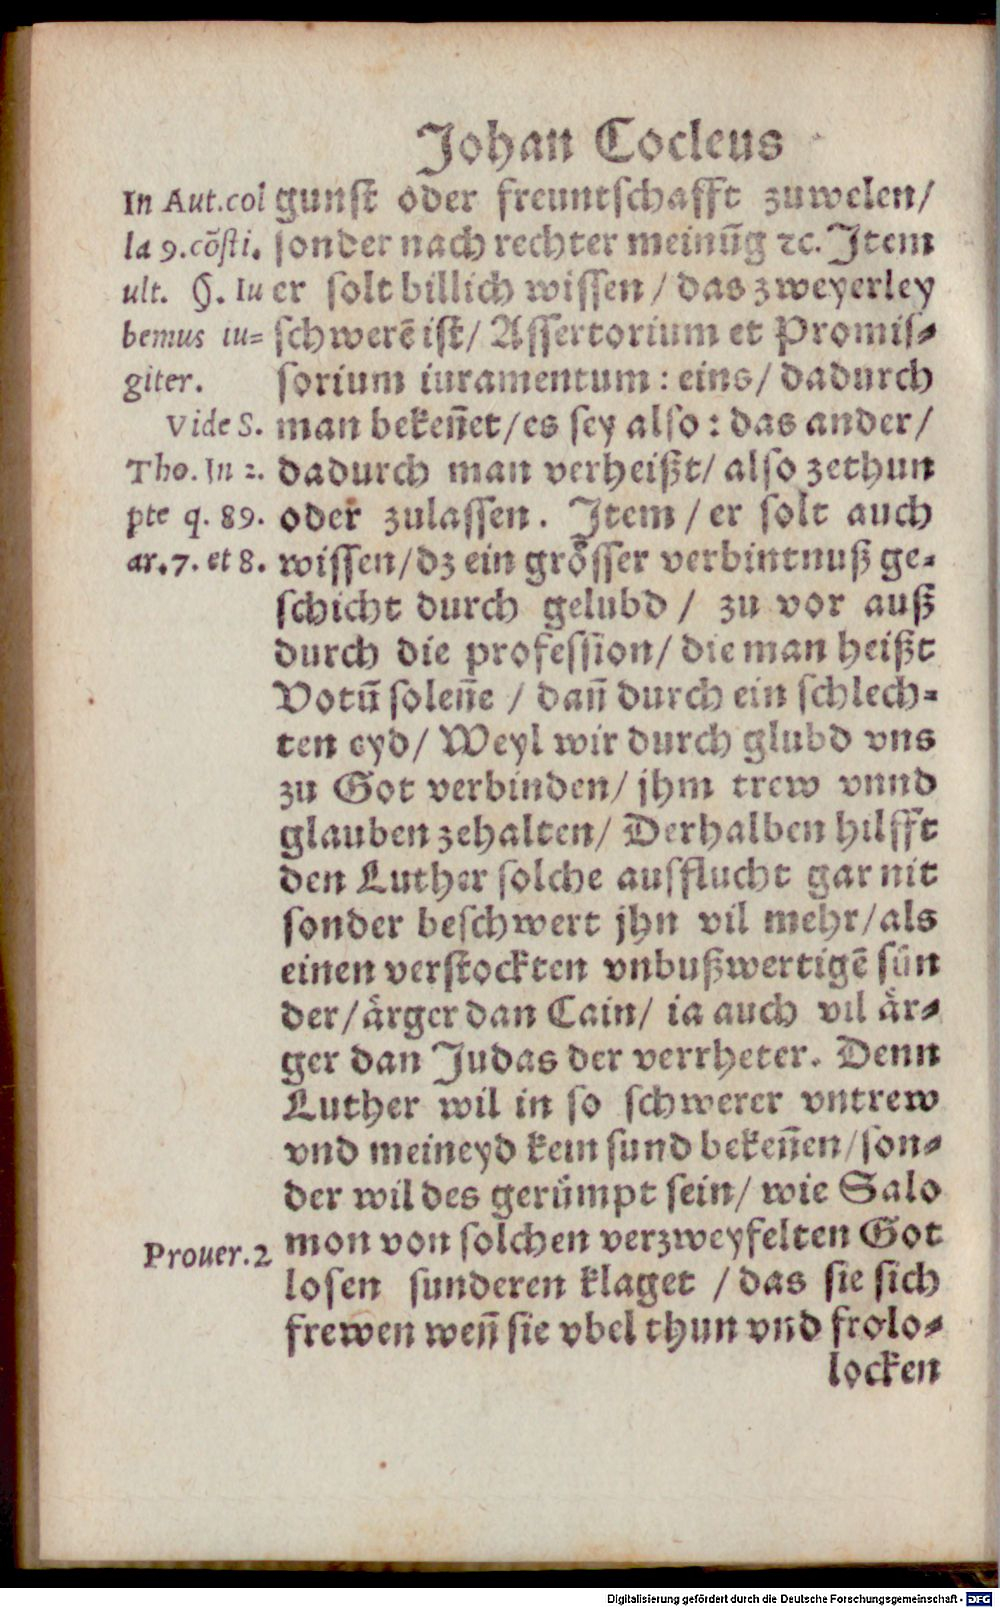 Johan Cocleus
In Aut.col
la 9.cōsti.
ult. §. Iu
bemus iu=
giter.
Vide S.
Tho. In 2.
pte q. 89.
ar.7. et 8.
gunst oder freuntschafft zuwelen/
sonder nach rechter meinūg ꝛc. Jtem
er solt billich wissen / das zweyerley
schwerē ist/ Assertorium et Promis=
sorium iuramentum : eins/ dadurch
man bekeñet/ es sey also : das ander/
dadurch man verheißt/ also zethun
oder zulassen. Jtem / er solt auch
wissen/ dz ein grösser verbintnuß ge=
schicht durch gelubd / zu vor auß
durch die profession/ die man heißt
Votū soleñe / dañ durch ein schlech=
ten eyd/ Weyl wir durch glubd vns
zu Got verbinden/ jhm trew vnnd
glauben zehalten/ Derhalben hilfft
den Luther solche ausflucht gar nit
sonder beschwert jhn vil mehr/ als
einen verstockten vnbußwertigē sün
der/ ärger dan Cain/ ia auch vil är=
ger dan Judas der verrheter. Denn
Luther wil in so schwerer vntrew
vnd meineyd kein sund bekeñen/ son=
der wil des gerümpt sein/ wie Salo
mon von solchen verzweyfelten Got
losen sunderen klaget / das sie sich
frewen weñ sie vbel thun vnd frolo=
locken
Prouer.2
Digitalisierung gefördert durch die Deutsche Forschungsgemeinschaft - DFG